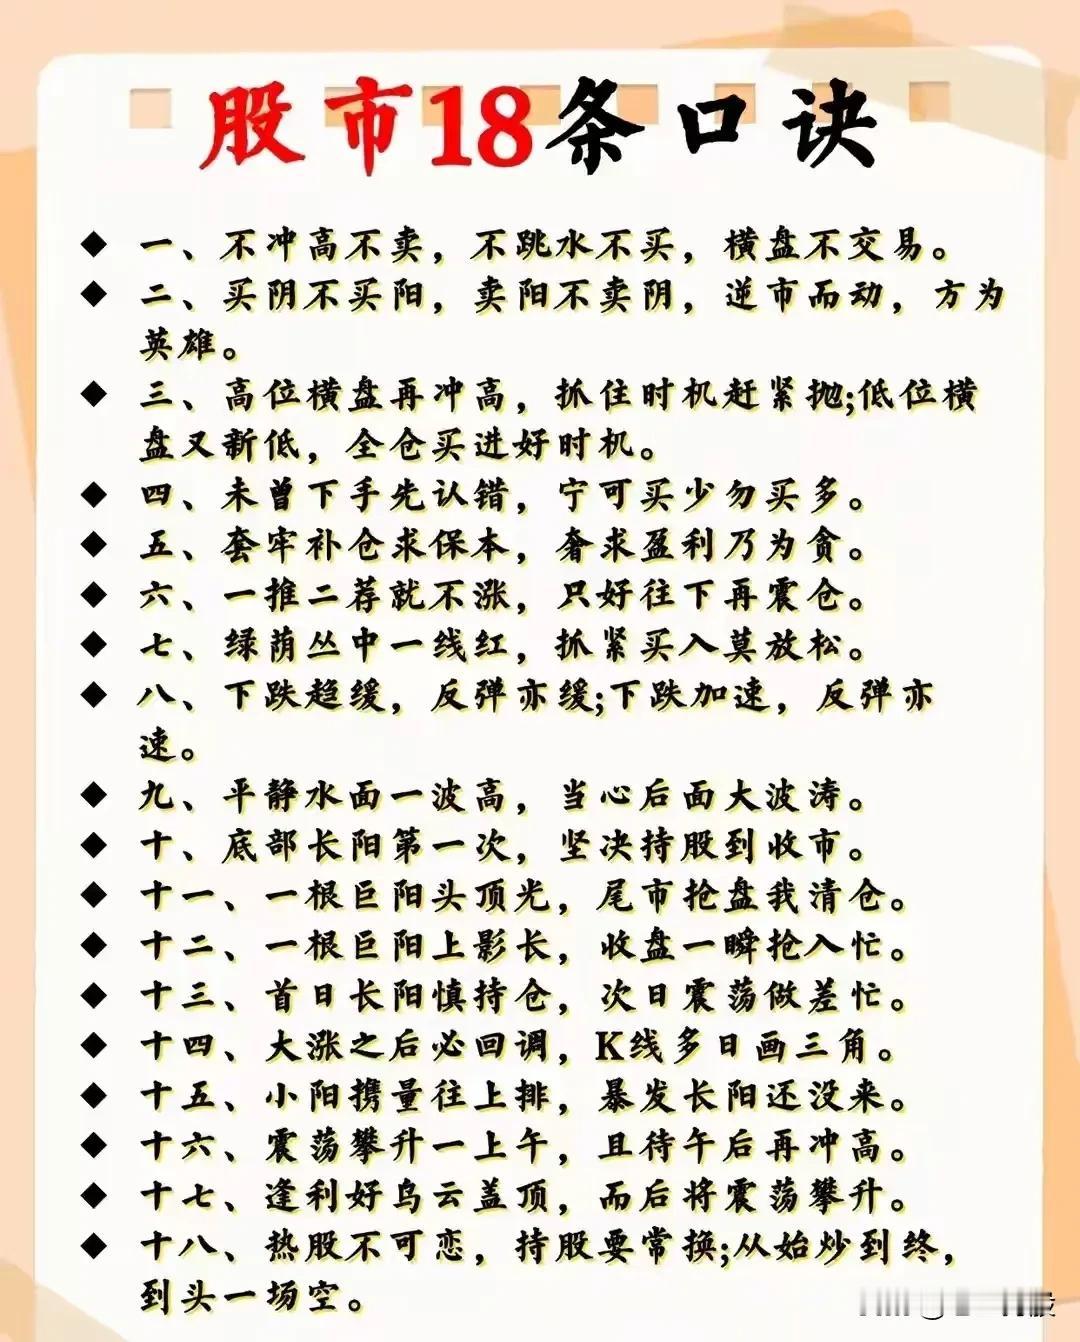 股市18条口诀
◆ 一、不冲高不卖，不跳水不买，横盘不交易。
◆ 二、买阴不买阳，卖阳不卖阴，逆市而动，方为
英雄。
◆ 三、高位横盘再冲高，抓住时机赶紧抛;低位横
盘又新低，全仓买进好时机。
◆ 四、未曾下手先认错，宁可买少勿买多。
◆ 五、套牢补仓求保本，奢求盈利乃为贪。
◆ 六、一推二荐就不涨，只好往下再震仓。
◆ 七、绿荫丛中一线红，抓紧买入莫放松。
◆ 八、下跌趋缓，反弹亦缓;下跌加速，反弹亦
速。
◆ 九、平静水面一波高，当心后面大波涛。
◆ 十、底部长阳第一次，坚决持股到收市。
◆ 十一、一根巨阳头顶光，尾市抢盘我清仓。
◆ 十二、一根巨阳上影长，收盘一瞬抢入忙。
◆ 十三、首日长阳慎持仓，次日震荡做差忙。
◆ 十四、大涨之后必回调，K线多日画三角。
◆ 十五、小阳携量往上排，暴发长阳还没来。
◆ 十六、震荡攀升一上午，且待午后再冲高。
◆ 十七、逢利好乌云盖顶，而后将震荡攀升。
◆ 十八、热股不可恋，持股要常换;从始炒到终，
到头一场空。